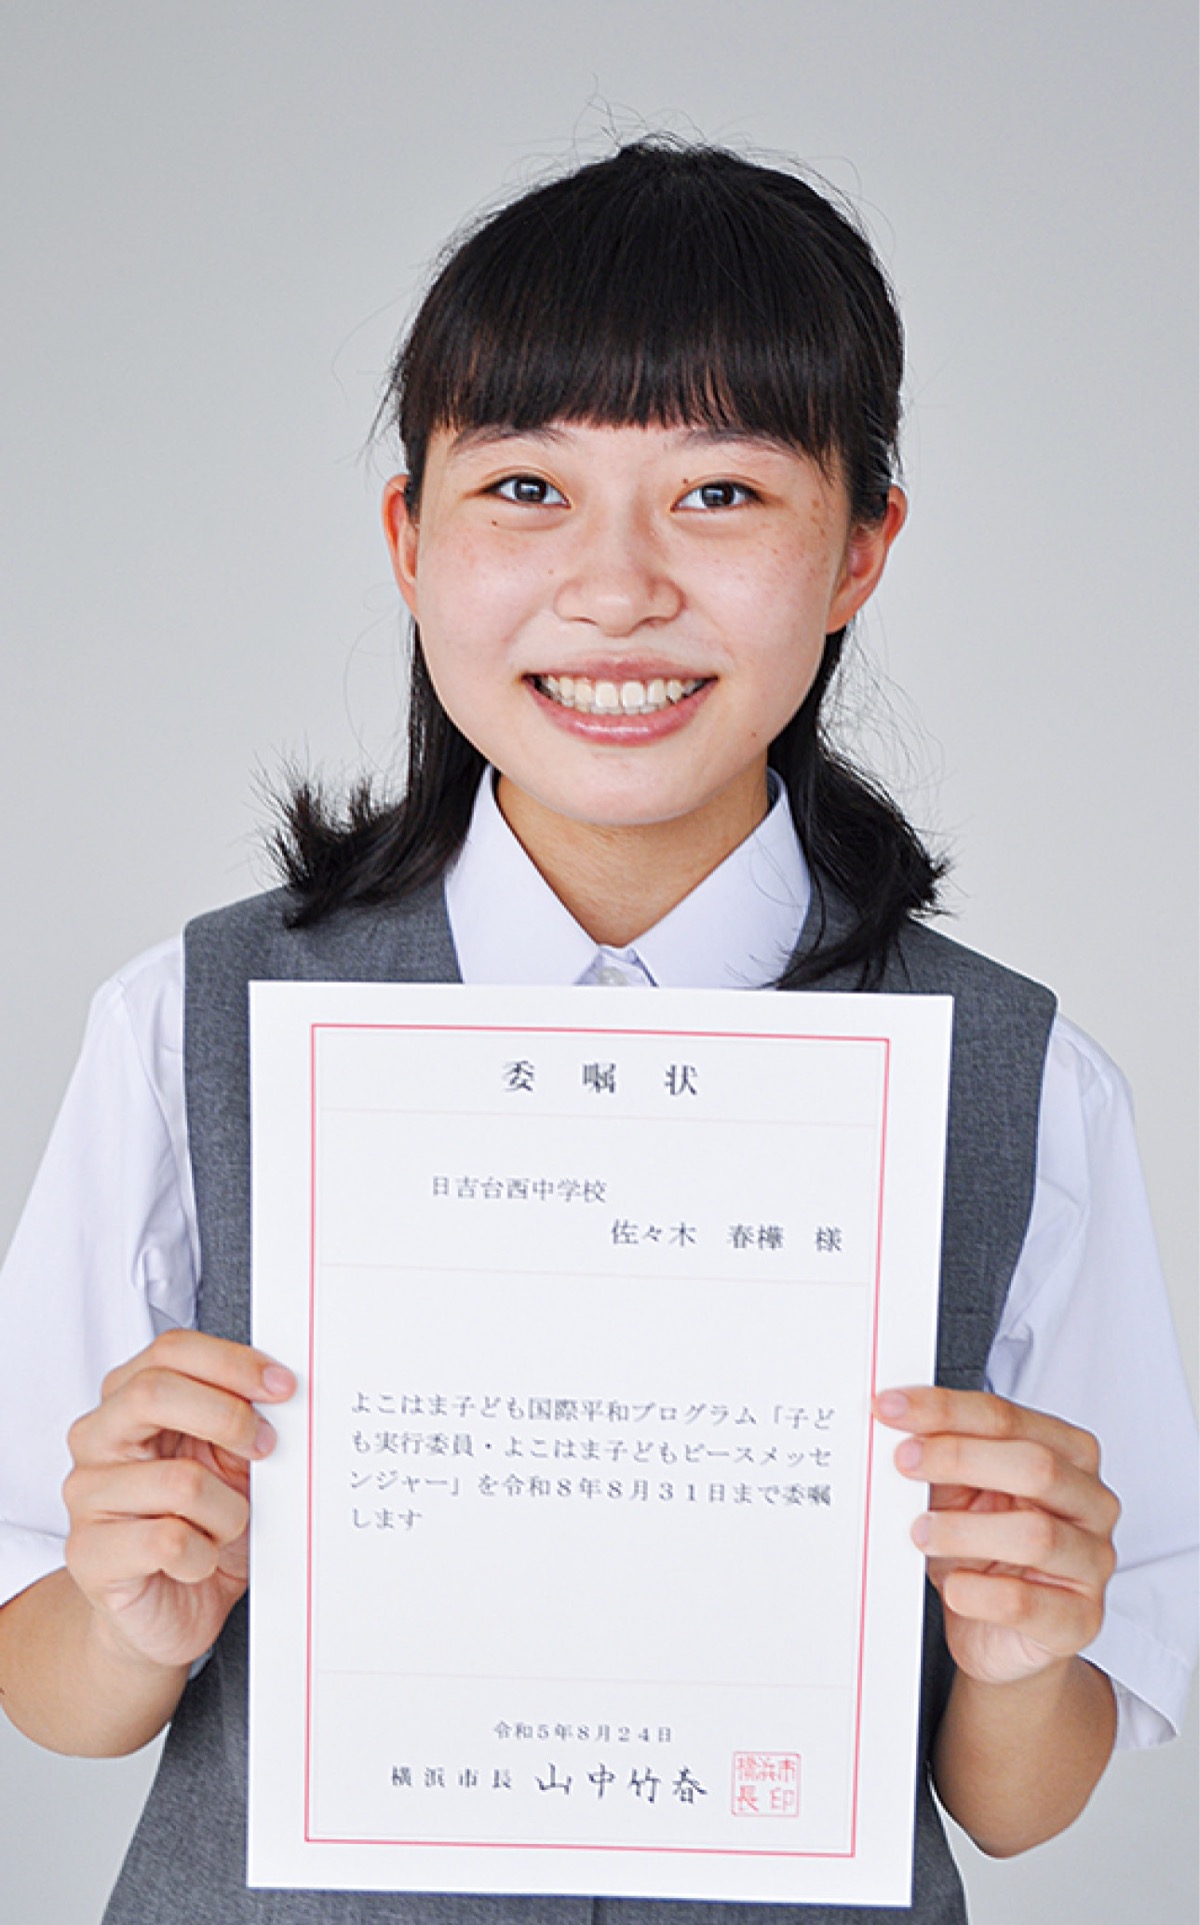 委嘱状
日吉台西中学校
佐々木　春樺　様
よこはま子ども国際平和プログラム「子ど
も実行委員・よこはま子どもピースメッセ
ンジャー」を令和８年８月３１日まで委嘱
します
令和５年８月２４日
横浜市長　山中竹春
横浜市
長印